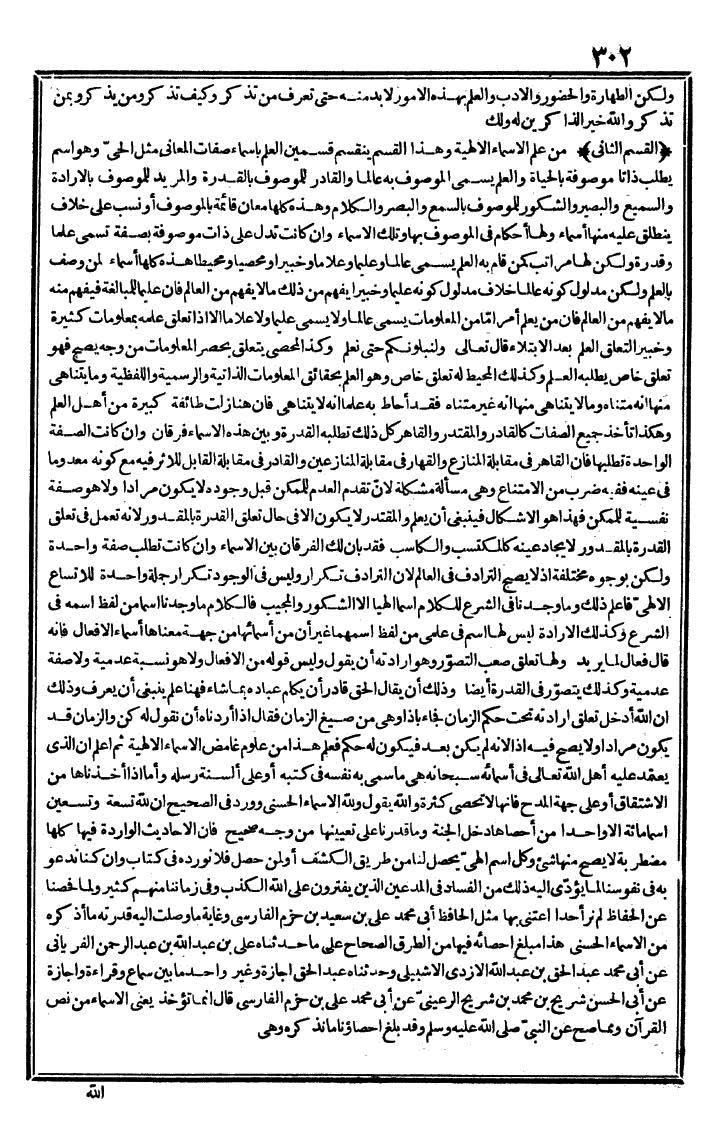 ٣٠٢
ولكن الطهارة والحضور والادب والعلم بهذه الامور لابد منه حتى تعرف من تذكر وكيف تذكر ومن يذكر وبمن
تذكر والله خير الذاكرين له ولك
﴿القسم الثانى﴾ من علم الاسماء الالهية وهذا القسم ينقسم قسمين العلم باسماء صفات المعانى مثل الحىّ وهو اسم
يطلب ذاتا موصوفة بالحياة والعلم يسمى الموصوف به عالما والقادر للموصوف بالقدرة والمريد للموصوف بالارادة
والسميع والبصير والشكور للموصوف بالسمع والبصر والكلام وهذه كلها معان قائمة بالموصوف أو نسب على خلاف
ينطلق عليه منها أسماء ولها أحكام فى الموصوف بها وتلك الاسماء وان كانت تدل على ذات موصوفة بصفة تسمى علما
وقدرة ولكن لها مراتب كمن قام به العلم يسمى عالما وعليما وعلاما وخبيرا ومحصيا ومحيطا هذه كلها أسماء لمن وصف
بالعلم ولكن مدلول كونه عالما خلاف مدلول كونه عليما وخبيرا يفهم من ذلك مالا يفهم من العالم فان عليما للمبالغة فيفهم منه
مالا يفهم من العالم فان من يعلم أمرا مّا من المعلومات يسمى عالما ولا يسمى عليما ولا علاما الا اذا تعلق علمه بمعلومات كثيرة
وخبير التعلق العلم بعد الابتلاء قال تعالى ولنبلونكم حتى نعلم وكذا المحصى يتعلق بحصر المعلومات من وجه يصح فهو
تعلق خاص يطلبه العلم وكذلك المحيط له تعلق خاص وهو العلم بحقائق المعلومات الذاتية والرسمية واللفظية وما يتناهى
منها انه متناه وما لا يتناهى منها انه غير متناه فقد أحاط به علما انه لا يتناهى فان هنا زلت طائفة كبيرة من أهل العلم
وهكذا تأخذ جميع الصفات كالقادر والمقتدر والقاهر كل ذلك تطلبه القدرة وبين هذه الاسماء فرقان وان كانت الصفة
الواحدة تطلبها فان القاهر فى مقابلة المنازع والقهار فى مقابلة المنازعين والقادر فى مقابلة القابل للاثر فيه مع كونه معدوما
فى عينه ففيه ضرب من الامتناع وهى مسألة مشكلة لانّ تقدم العدم للممكن قبل وجوده لا يكون مرادا ولا هو صفة
نفسية للممكن فهذا هو الاشكال فينبغى أن يعلم والمقتدر لا يكون الا فى حال تعلق القدرة بالمقدور لانه تعمل فى تعلق
القدرة بالمقدور لايجاد عينه كالمكتسب والكاسب فقد بان لك الفرقان بين الاسماء وان كانت تطلب صفة واحدة
ولكن بوجوه مختلفة اذ لا يصح الترادف فى العالم لان الترادف تكرار وليس فى الوجود تكرار جملة واحدة للاتساع
الالهىّ فاعلم ذلك وما وجدنا فى الشرع للكلام اسما الهيا الا الشكور والمجيب فالكلام ما وجدنا اسما من لفظ اسمه فى
الشرع وكذلك الارادة ليس لها اسم فى علمى من لفظ اسمها غير أن من أسمائها من جهة معناها أسماء الافعال فانه
قال فعال لما يريد ولها تعلق صعب التصوّر وهو ارادته أن يقول وليس قوله من الافعال ولا هو نسبة عدمية ولا صفة
عدمية وكذلك يتصوّر فى القدرة أيضا وذلك أن يقال الحق قادر أن يكلم عباده بما شاء فهنا علم ينبغى أن يعرف وذلك
ان الله أدخل تعلق ارادته تحت حكم الزمان فجاء باذا وهى من صيغ الزمان فقال اذا أردناه أن نقول له كن والزمان قد
يكون مرادا ولا يصح فيه اذا لانه لم يكن بعد فيكون له حكم فعلم هذا من علوم غامض الاسماء الالهية ثم اعلم ان الذى
يعتمد عليه أهل الله تعالى فى أسمائه سبحانه هى ما سمى به نفسه فى كتبه أو على ألسنة رسله وأما اذا أخذناها من
الاشتقاق أو على جهة المدح فانها لا تحصى كثرة والله يقول ولله الاسماء الحسنى وورد فى الصحيح ان لله تسعة وتسعين
اسما مائة الا واحدا من أحصاها دخل الجنة وما قدرنا على تعيينها من وجه صحيح فان الاحاديث الواردة فيها كلها
مضطربة لا يصح منها شئ وكل اسم الهىّ يحصل لنا من طريق الكشف أو لمن حصل فلا نورده فى كتاب وان كنا ندعو
به فى نفوسنا لما يؤدّى اليه ذلك من الفساد فى المدعين الذين يفترون على الله الكذب وفى زماننا منهم كثير ولما فحصنا
عن الحفاظ لم نر أحدا اعتنى بها مثل الحافظ أبى محمد على بن سعيد بن حزم الفارسى وغاية ما وصلت اليه قدرته ما أذكره
من الاسماء الحسنى هذا مبلغ احصائه فيها من الطرق الصحاح على ما حدثناه على بن عبد الله بن عبد الرحمن الفريانى
عن أبى محمد عبد الحق بن عبد الله الازدى الاشبيلى وحدثناه عبد الحق اجازة وغير واحد ما بين سماع وقراءة واجازة
عن أبى الحسن شريح بن محمد بن شريح الرعينىّ عن أبى محمد على بن حزم الفارسى قال انما تؤخذ يعنى الاسماء من نص
القرآن ومما صح عن النبىّ صلى الله عليه وسلم وقد بلغ احصاؤنا ما نذكره وهى
الله